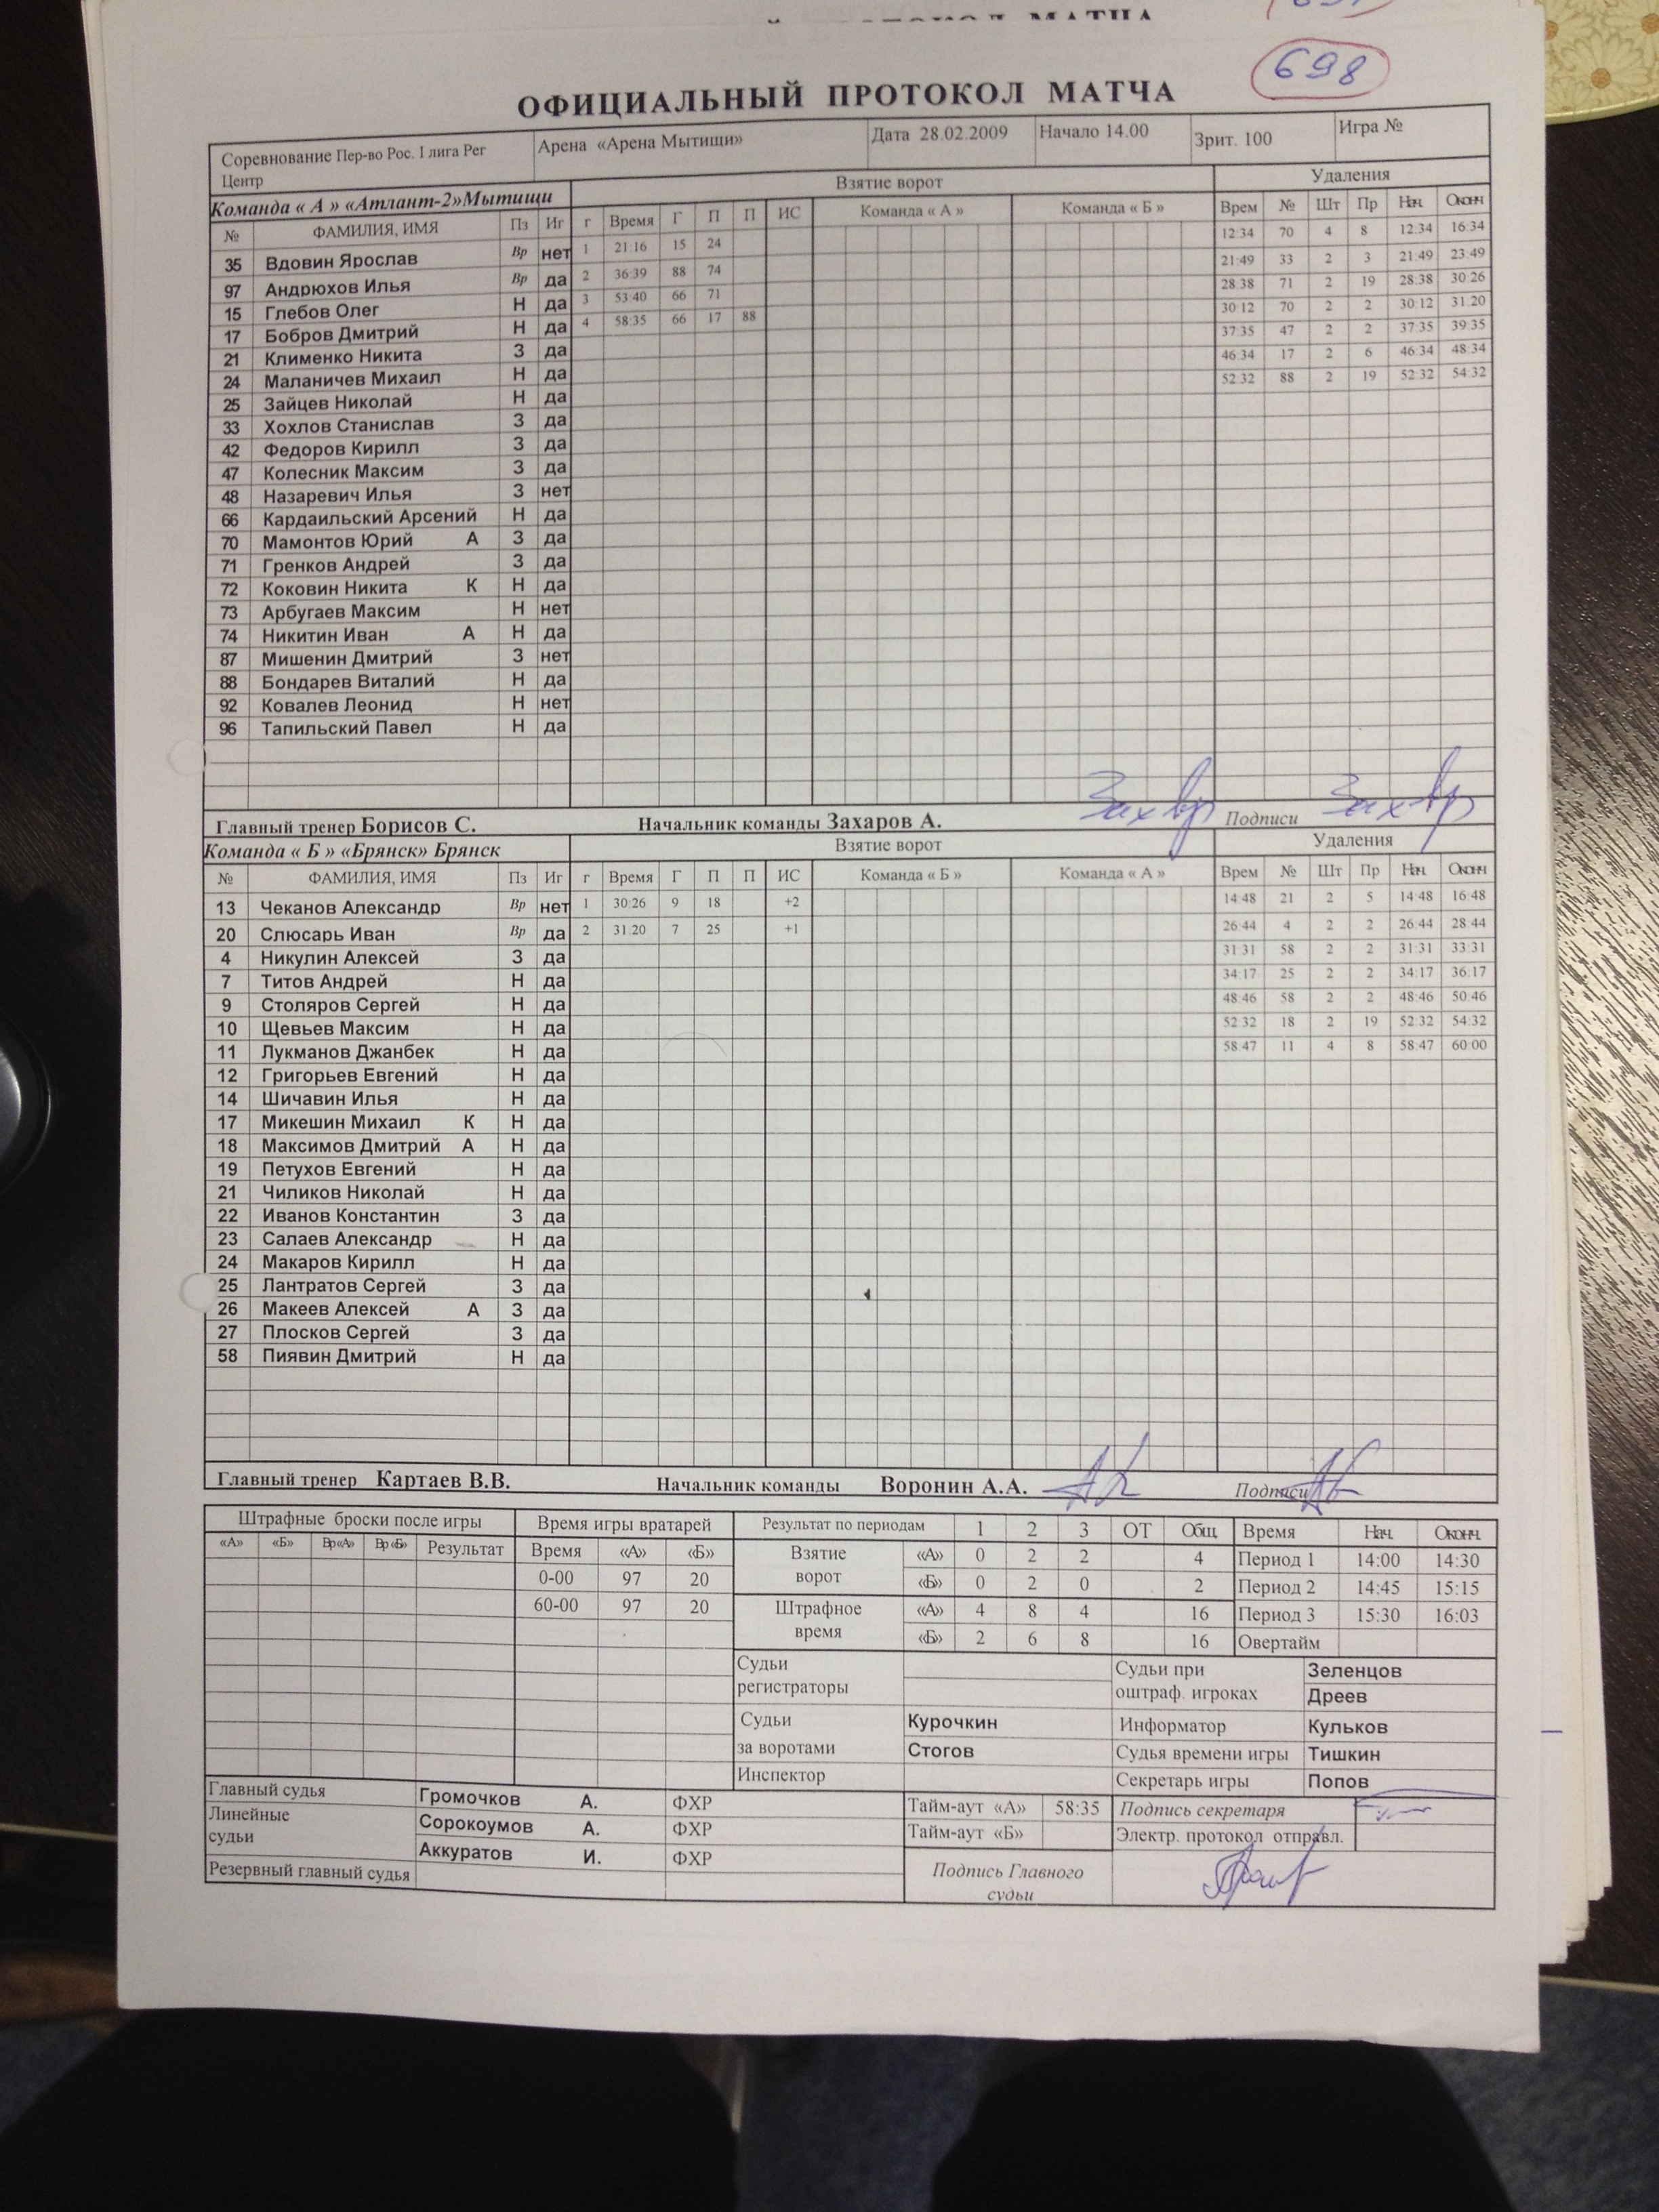 698
ОФИЦИАЛЬНЫЙ ПРОТОКОЛ МАТЧА
Соревнование Пер-во Рос. I лига Рег Центр Арена «Арена Мытищи» Дата 28.02.2009 Начало 14.00 Зрит. 100 Игра №
Команда « А » «Атлант-2»Мытищи Взятие ворот Удаления
№ ФАМИЛИЯ, ИМЯ Пз Иг г Время Г П П ИС Команда « А » Команда « Б » Врем № Шт Пр Нач. Оконч
35 Вдовин Ярослав Вр нет 1 21:16 15 24 12:34 70 4 8 12:34 16:34
97 Андрюхов Илья Вр да 2 36:39 88 74 21:49 33 2 3 21:49 23:49
15 Глебов Олег Н да 3 53:40 66 71 28:38 71 2 19 28:38 30:26
17 Бобров Дмитрий Н да 4 58:35 66 17 88 30:12 70 2 2 30:12 31:20
21 Клименко Никита З да 37:35 47 2 2 37:35 39:35
24 Маланичев Михаил Н да 46:34 17 2 6 46:34 48:34
25 Зайцев Николай Н да 52:32 88 2 19 52:32 54:32
33 Хохлов Станислав З да
42 Федоров Кирилл З да
47 Колесник Максим З да
48 Назаревич Илья З нет
66 Кардаильский Арсений Н да
70 Мамонтов Юрий А З да
71 Гренков Андрей З да
72 Коковин Никита К Н да
73 Арбугаев Максим Н нет
74 Никитин Иван А Н да
87 Мишенин Дмитрий З нет
88 Бондарев Виталий Н да
92 Ковалев Леонид Н нет
96 Тапильский Павел Н да
Главный тренер Борисов С. Начальник команды Захаров А. Подписи
Команда « Б » «Брянск» Брянск Взятие ворот Удаления
№ ФАМИЛИЯ, ИМЯ Пз Иг г Время Г П П ИС Команда « Б » Команда « А » Врем № Шт Пр Нач. Оконч
13 Чеканов Александр Вр нет 1 30:26 9 18 +2 14:48 21 2 5 14:48 16:48
20 Слюсарь Иван Вр да 2 31:20 7 25 +1 26:44 4 2 2 26:44 28:44
4 Никулин Алексей З да 31:31 58 2 2 31:31 33:31
7 Титов Андрей Н да 34:17 25 2 2 34:17 36:17
9 Столяров Сергей Н да 48:46 58 2 2 48:46 50:46
10 Щевьев Максим Н да 52:32 18 2 19 52:32 54:32
11 Лукманов Джанбек Н да 58:47 11 4 8 58:47 60:00
12 Григорьев Евгений Н да
14 Шичавин Илья Н да
17 Микешин Михаил К Н да
18 Максимов Дмитрий А Н да
19 Петухов Евгений Н да
21 Чиликов Николай Н да
22 Иванов Константин З да
23 Салаев Александр Н да
24 Макаров Кирилл Н да
25 Лантратов Сергей З да
26 Макеев Алексей А З да
27 Плосков Сергей З да
58 Пиявин Дмитрий Н да
Главный тренер Картаев В.В. Начальник команды Воронин А.А. Подписи
Штрафные броски после игры Время игры вратарей Результат по периодам 1 2 3 ОТ Общ. Время Нач. Оконч.
«А» «Б» Вр«А» Вр«Б» Результат Время «А» «Б» Взятие ворот «А» 0 2 2 4 Период 1 14:00 14:30
0-00 97 20 «Б» 0 2 0 2 Период 2 14:45 15:15
60-00 97 20 Штрафное время «А» 4 8 4 16 Период 3 15:30 16:03
«Б» 2 6 8 16 Овертайм
Судьи регистраторы Судьи при оштраф. игроках Зеленцов
Дреев
Судьи за воротами Курочкин Информатор Кульков
Стогов Судья времени игры Тишкин
Инспектор Секретарь игры Попов
Главный судья Громочков А. ФХР Тайм-аут «А» 58:35 Подпись секретаря
Линейные судьи Сорокоумов А. ФХР Тайм-аут «Б» Электр. протокол отправл.
Аккуратов И. ФХР Подпись Главного судьи
Резервный главный судья